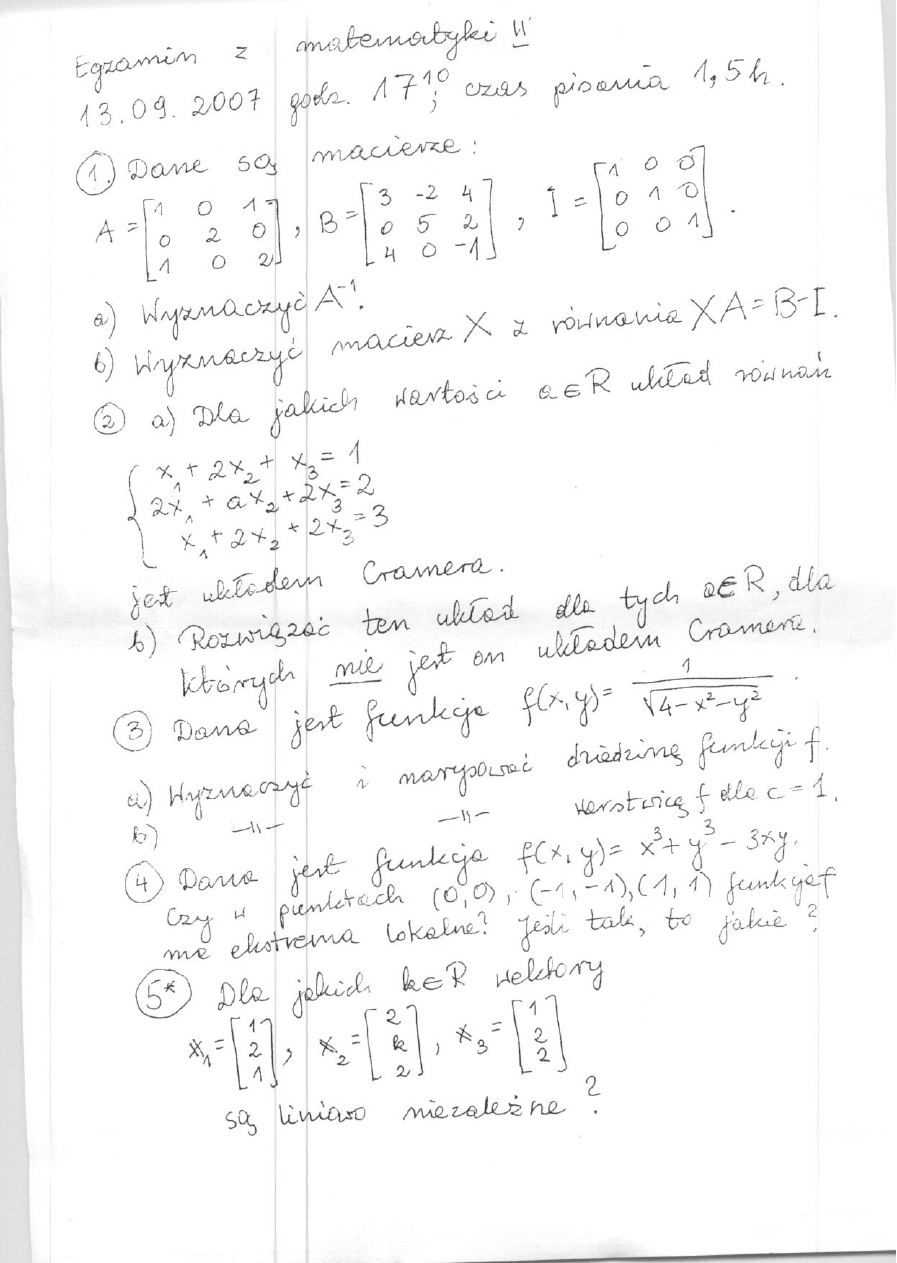 Egzamin z matematyki II
13.09.2007 godz. 17¹⁰; czas pisania 1,5h.
1. Dane są macierze:
A = [1 0 1; 0 2 0; 1 0 2], B = [3 -2 4; 0 5 2; 4 0 -1], I = [1 0 0; 0 1 0; 0 0 1].
a) Wyznaczyć A⁻¹.
b) Wyznaczyć macierz X z równania XA = B-I.
2 a) Dla jakich wartości a∈R układ równań
x₁ + 2x₂ + x₃ = 1
2x₁ + ax₂ + 2x₃ = 2
x₁ + 2x₂ + 2x₃ = 3
jest układem Cramera.
b) Rozwiązać ten układ dla tych a∈R, dla
których nie jest on układem Cramera.
3 Dana jest funkcja f(x,y) = 1/√(4-x²-y²).
a) Wyznaczyć i narysować dziedzinę funkcji f.
b) —||— —||— warstwicę f dla c = 1.
4 Dana jest funkcja f(x,y) = x³ + y³ - 3xy.
Czy w punktach (0,0), (-1,-1), (1,1) funkcja f
ma ekstrema lokalne? Jeśli tak, to jakie?
5* Dla jakich k∈R wektory
x₁ = [1; 2; 1], x₂ = [2; k; 2], x₃ = [1; 2; 2]
są liniowo niezależne?